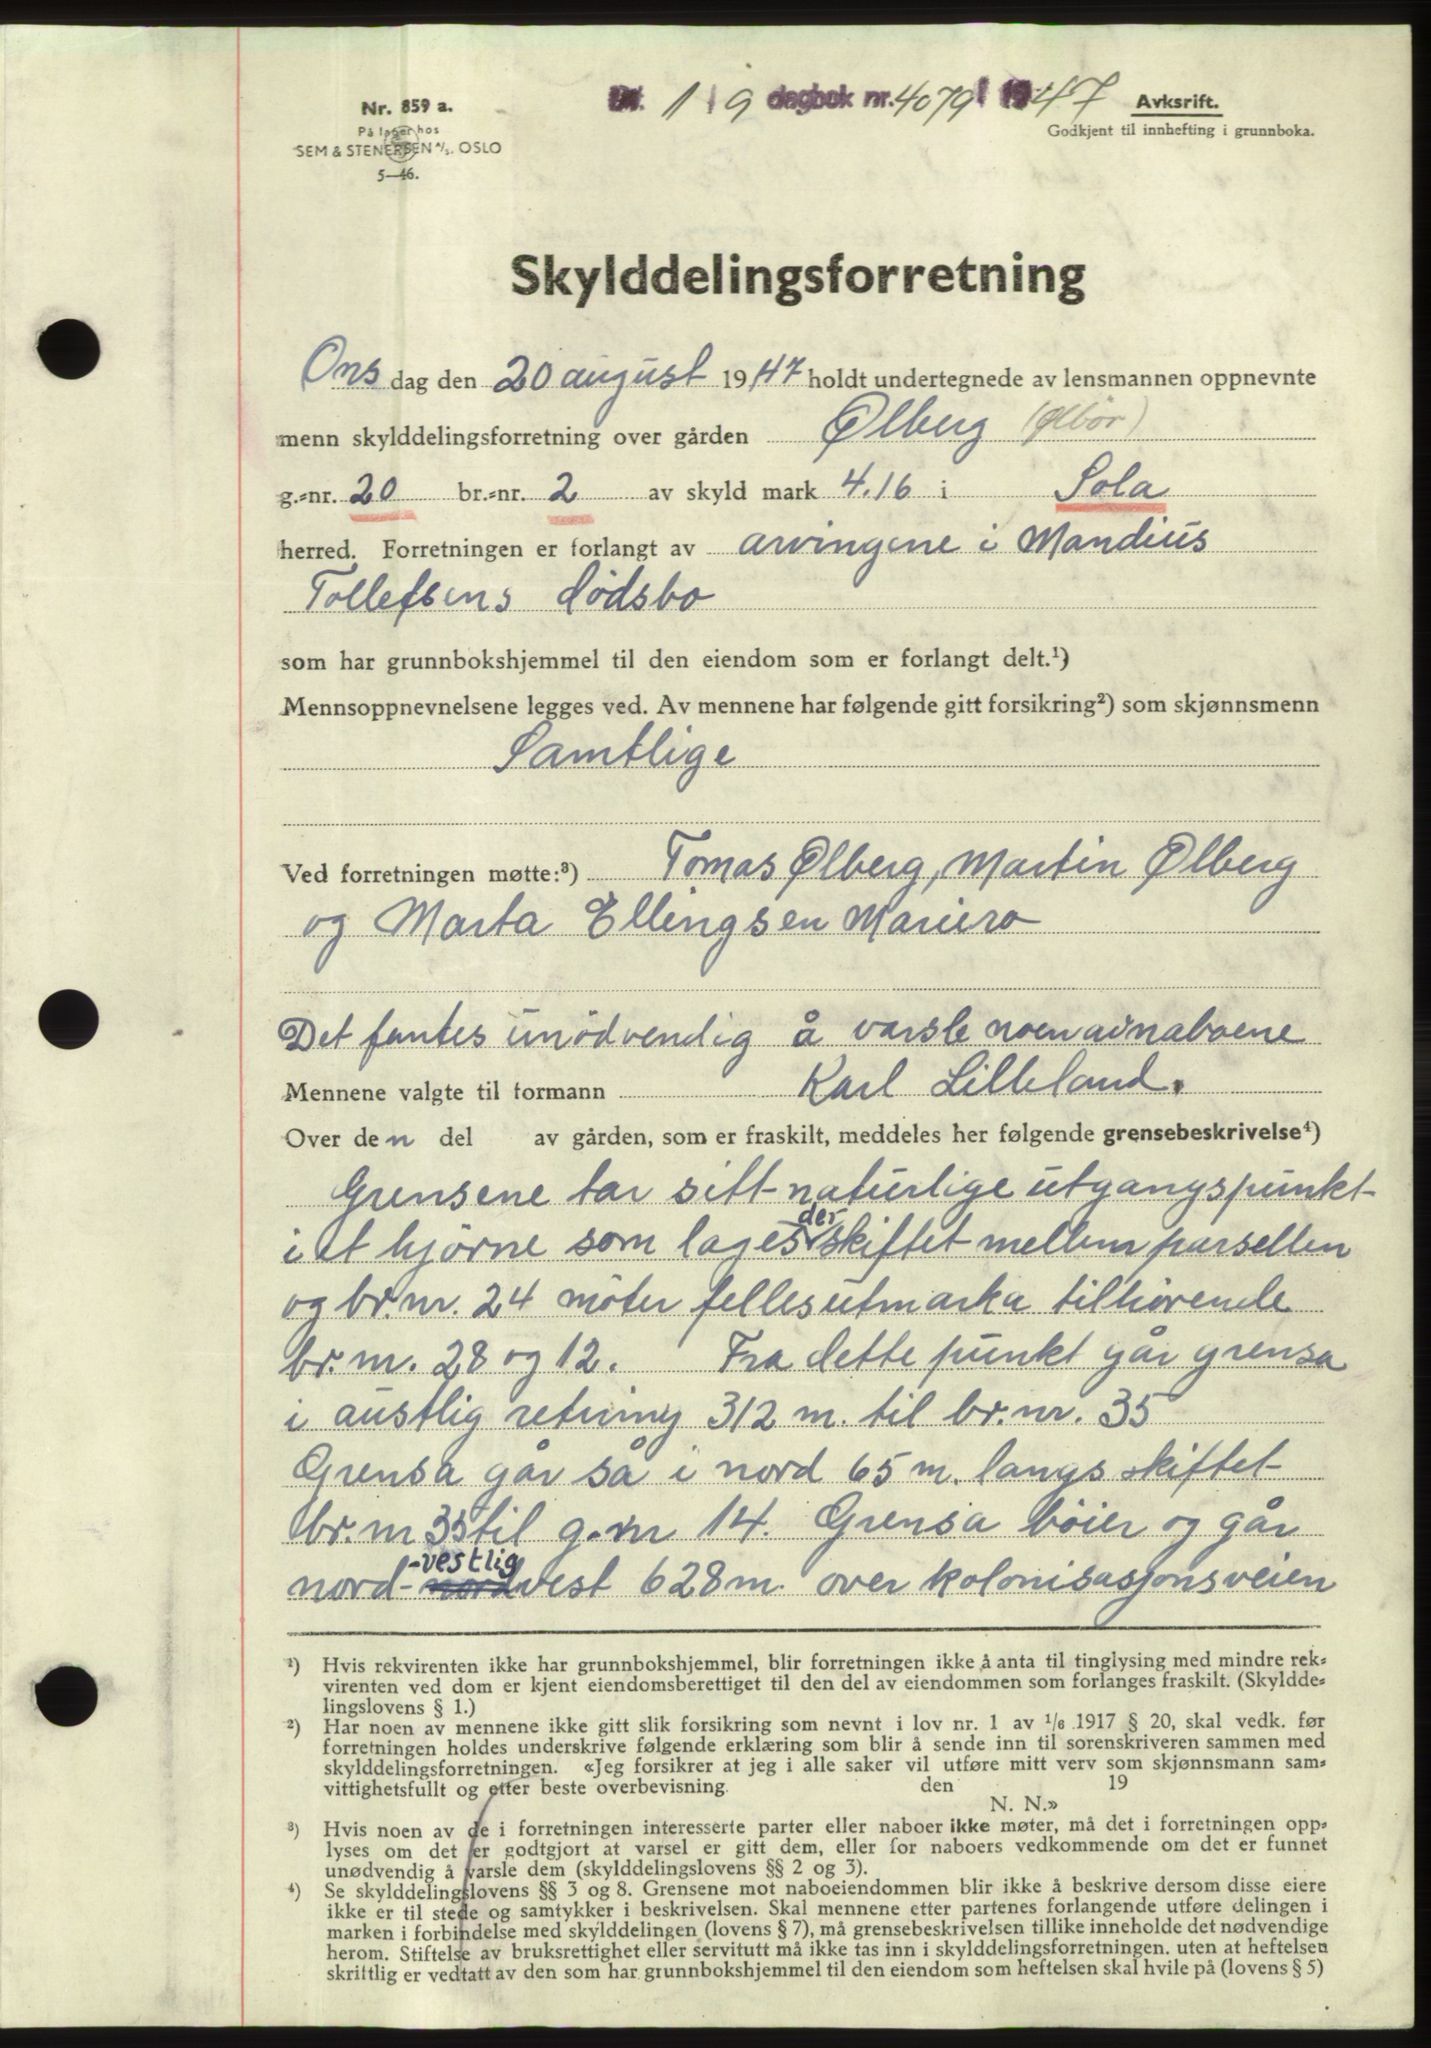 Nr. 859 a.
På lager hos
SEM & STENERSEN A/S. OSLO
5—46.
1 9 dagbok nr. 4079 1947
Avksrift.
Godkjent til innhefting i grunnboka.
Skylddelingsforretning
Ons dag den 20 august 1947 holdt undertegnede av lensmannen oppnevnte
menn skylddelingsforretning over gården Ølberg (Ølbör)
g.=nr. 20 br.=nr. 2 av skyld mark 4.16 i Sola
herred. Forretningen er forlangt av arvingene i Mandius
Tollefsens dødsbo
som har grunnbokshjemmel til den eiendom som er forlangt delt.¹)
Mennsoppnevnelsene legges ved. Av mennene har følgende gitt forsikring²) som skjønnsmenn
Samtlige
Ved forretningen møtte:³) Tomas Ølberg, Martin Ølberg
og Marta Ellingsen Mariero
Det fantes unödvendig å varsle noen av naboene
Mennene valgte til formann Karl Lilleland.
Over den del av gården, som er fraskilt, meddeles her følgende grensebeskrivelse⁴)
Grensene tar sitt naturlige utgangspunkt
i et hjörne som lages der skiftet mellem parsellen
og br.nr. 24 möter fellesutmarka tilhörende
br.nr. 28 og 12. Fra dette punkt går grensa
i austlig retning 312 m. til br.nr. 35
Grensa går så i nord 65 m. langs skiftet
br.nr 35 til g.nr 14. Grensa böier og går
nord-nordvest -vestlig 628 m. over kolonisasjonsveien
¹) Hvis rekvirenten ikke har grunnbokshjemmel, blir forretningen ikke å anta til tinglysing med mindre rek=
virenten ved dom er kjent eiendomsberettiget til den del av eiendommen som forlanges fraskilt. (Skyldde=
lingslovens § 1.)
²) Har noen av mennene ikke gitt slik forsikring som nevnt i lov nr. 1 av 1/6 1917 § 20, skal vedk. før
forretningen holdes underskrive følgende erklæring som blir å sende inn til sorenskriveren sammen med
skylddelingsforretningen. «Jeg forsikrer at jeg i alle saker vil utføre mitt verv som skjønnsmann sam=
vittighetsfullt og etter beste overbevisning. den 19
N. N.»
³) Hvis noen av de i forretningen interesserte parter eller naboer ikke møter, må det i forretningen opp=
lyses om det er godtgjort at varsel er gitt dem, eller for naboers vedkommende om det er funnet
unødvendig å varsle dem (skylddelingslovens §§ 2 og 3).
⁴) Se skylddelingslovens §§ 3 og 8. Grensene mot naboeiendommen blir ikke å beskrive dersom disse eiere
ikke er til stede og samtykker i beskrivelsen. Skal mennene etter partenes forlangende utføre delingen i
marken i forbindelse med skylddelingen (lovens § 7), må grensebeskrivelsen tillike inneholde det nødvendige
herom. Stiftelse av bruksrettighet eller servitutt må ikke tas inn i skylddelingsforretningen. uten at heftelsen
skriftlig er vedtatt av den som har grunnbokshjemmel til den eiendom som heftelsen skal hvile på (lovens § 5)